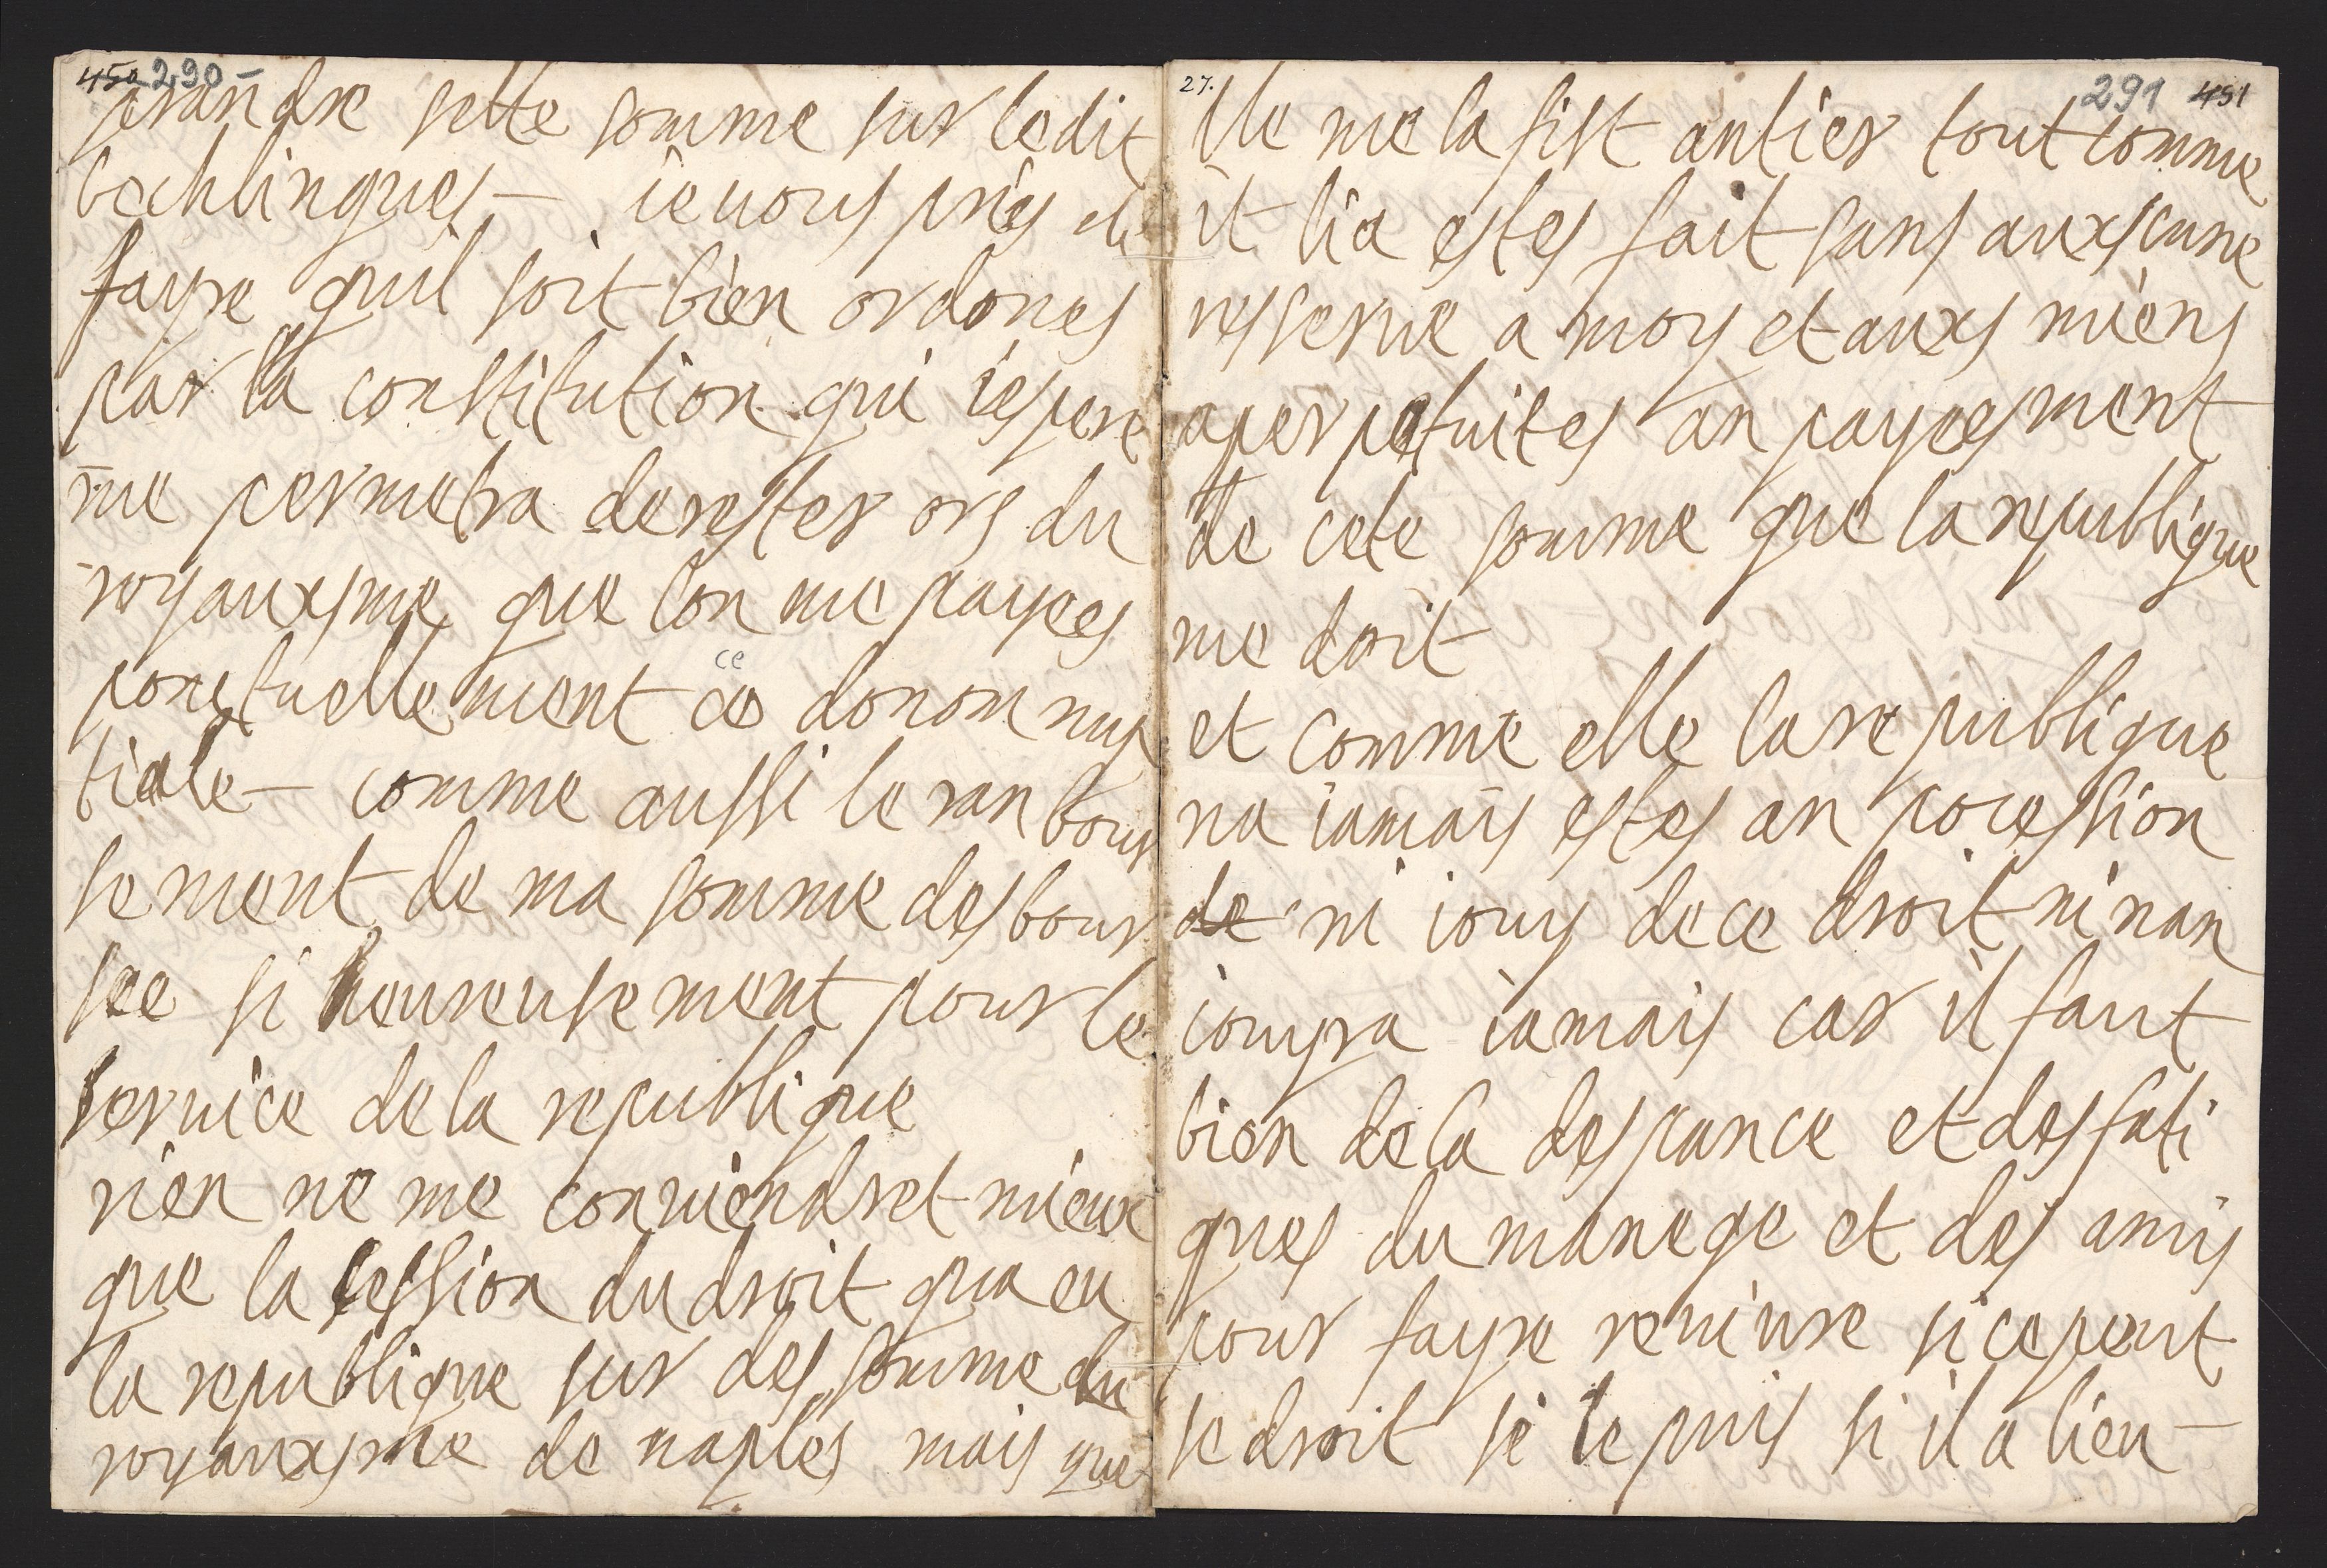 450 290 –
prandre sette somme sur ledit
bechlingues – ie uous pries de
fayre quil soit bien ordones
par la constitution qui iespere
me permetra derester ors du
royauxsme que lon me payees
ponctuellement ce
ce donom nup
tiale – comme aussi le ran bour
sement de ma somme des bour
see si heureusement pour le
seruice de la republique
rien ne me conuiendret mieux
que la session du droit qua eu
la republique sur des somme du
royauxsme de naples mais que
27. 291 451
lle me la fist antier tout comme
it lia estes fait sans auxscune
resserue a moy et auxs miens
aperpetuites an payeesment
de cete somme que la republique
me doit
et comme elle la republique
na iamais estes an pocession
de ni iouy de ce droit ni nan
iouyra iamais car il faut
bien de la despance et des fati
gues du manege et des amis
pour fayre reuiure si ce peut
se droit si le puis si il a lieu –